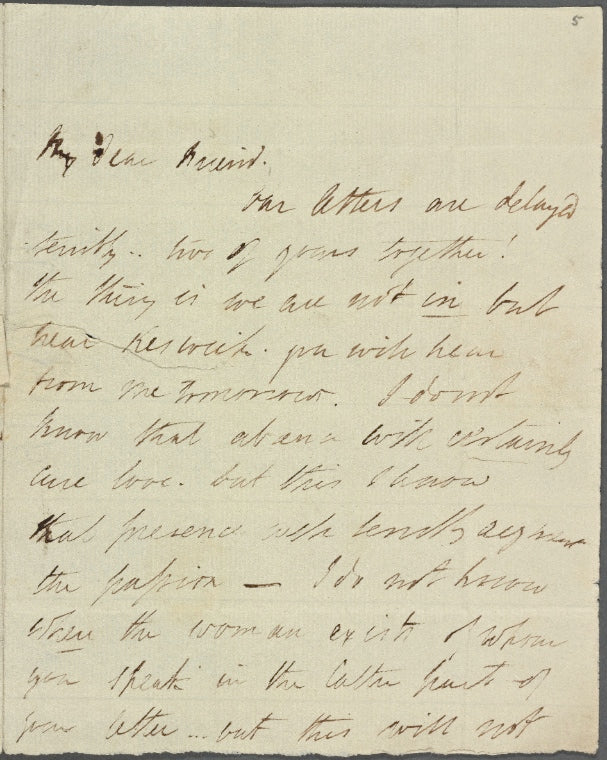 5
My dear Friend.
Our letters are delayed
terribly.. two of yours together!
the thing is we are not in but
near Keswick. you will hear
from me tomorrow. I do not
know that absence will certainly
cure love. but this I know
that presence will terribly augment
the passion — I do not know
where the woman exists of whom
you speak in the latter part of
your letter... but this will not